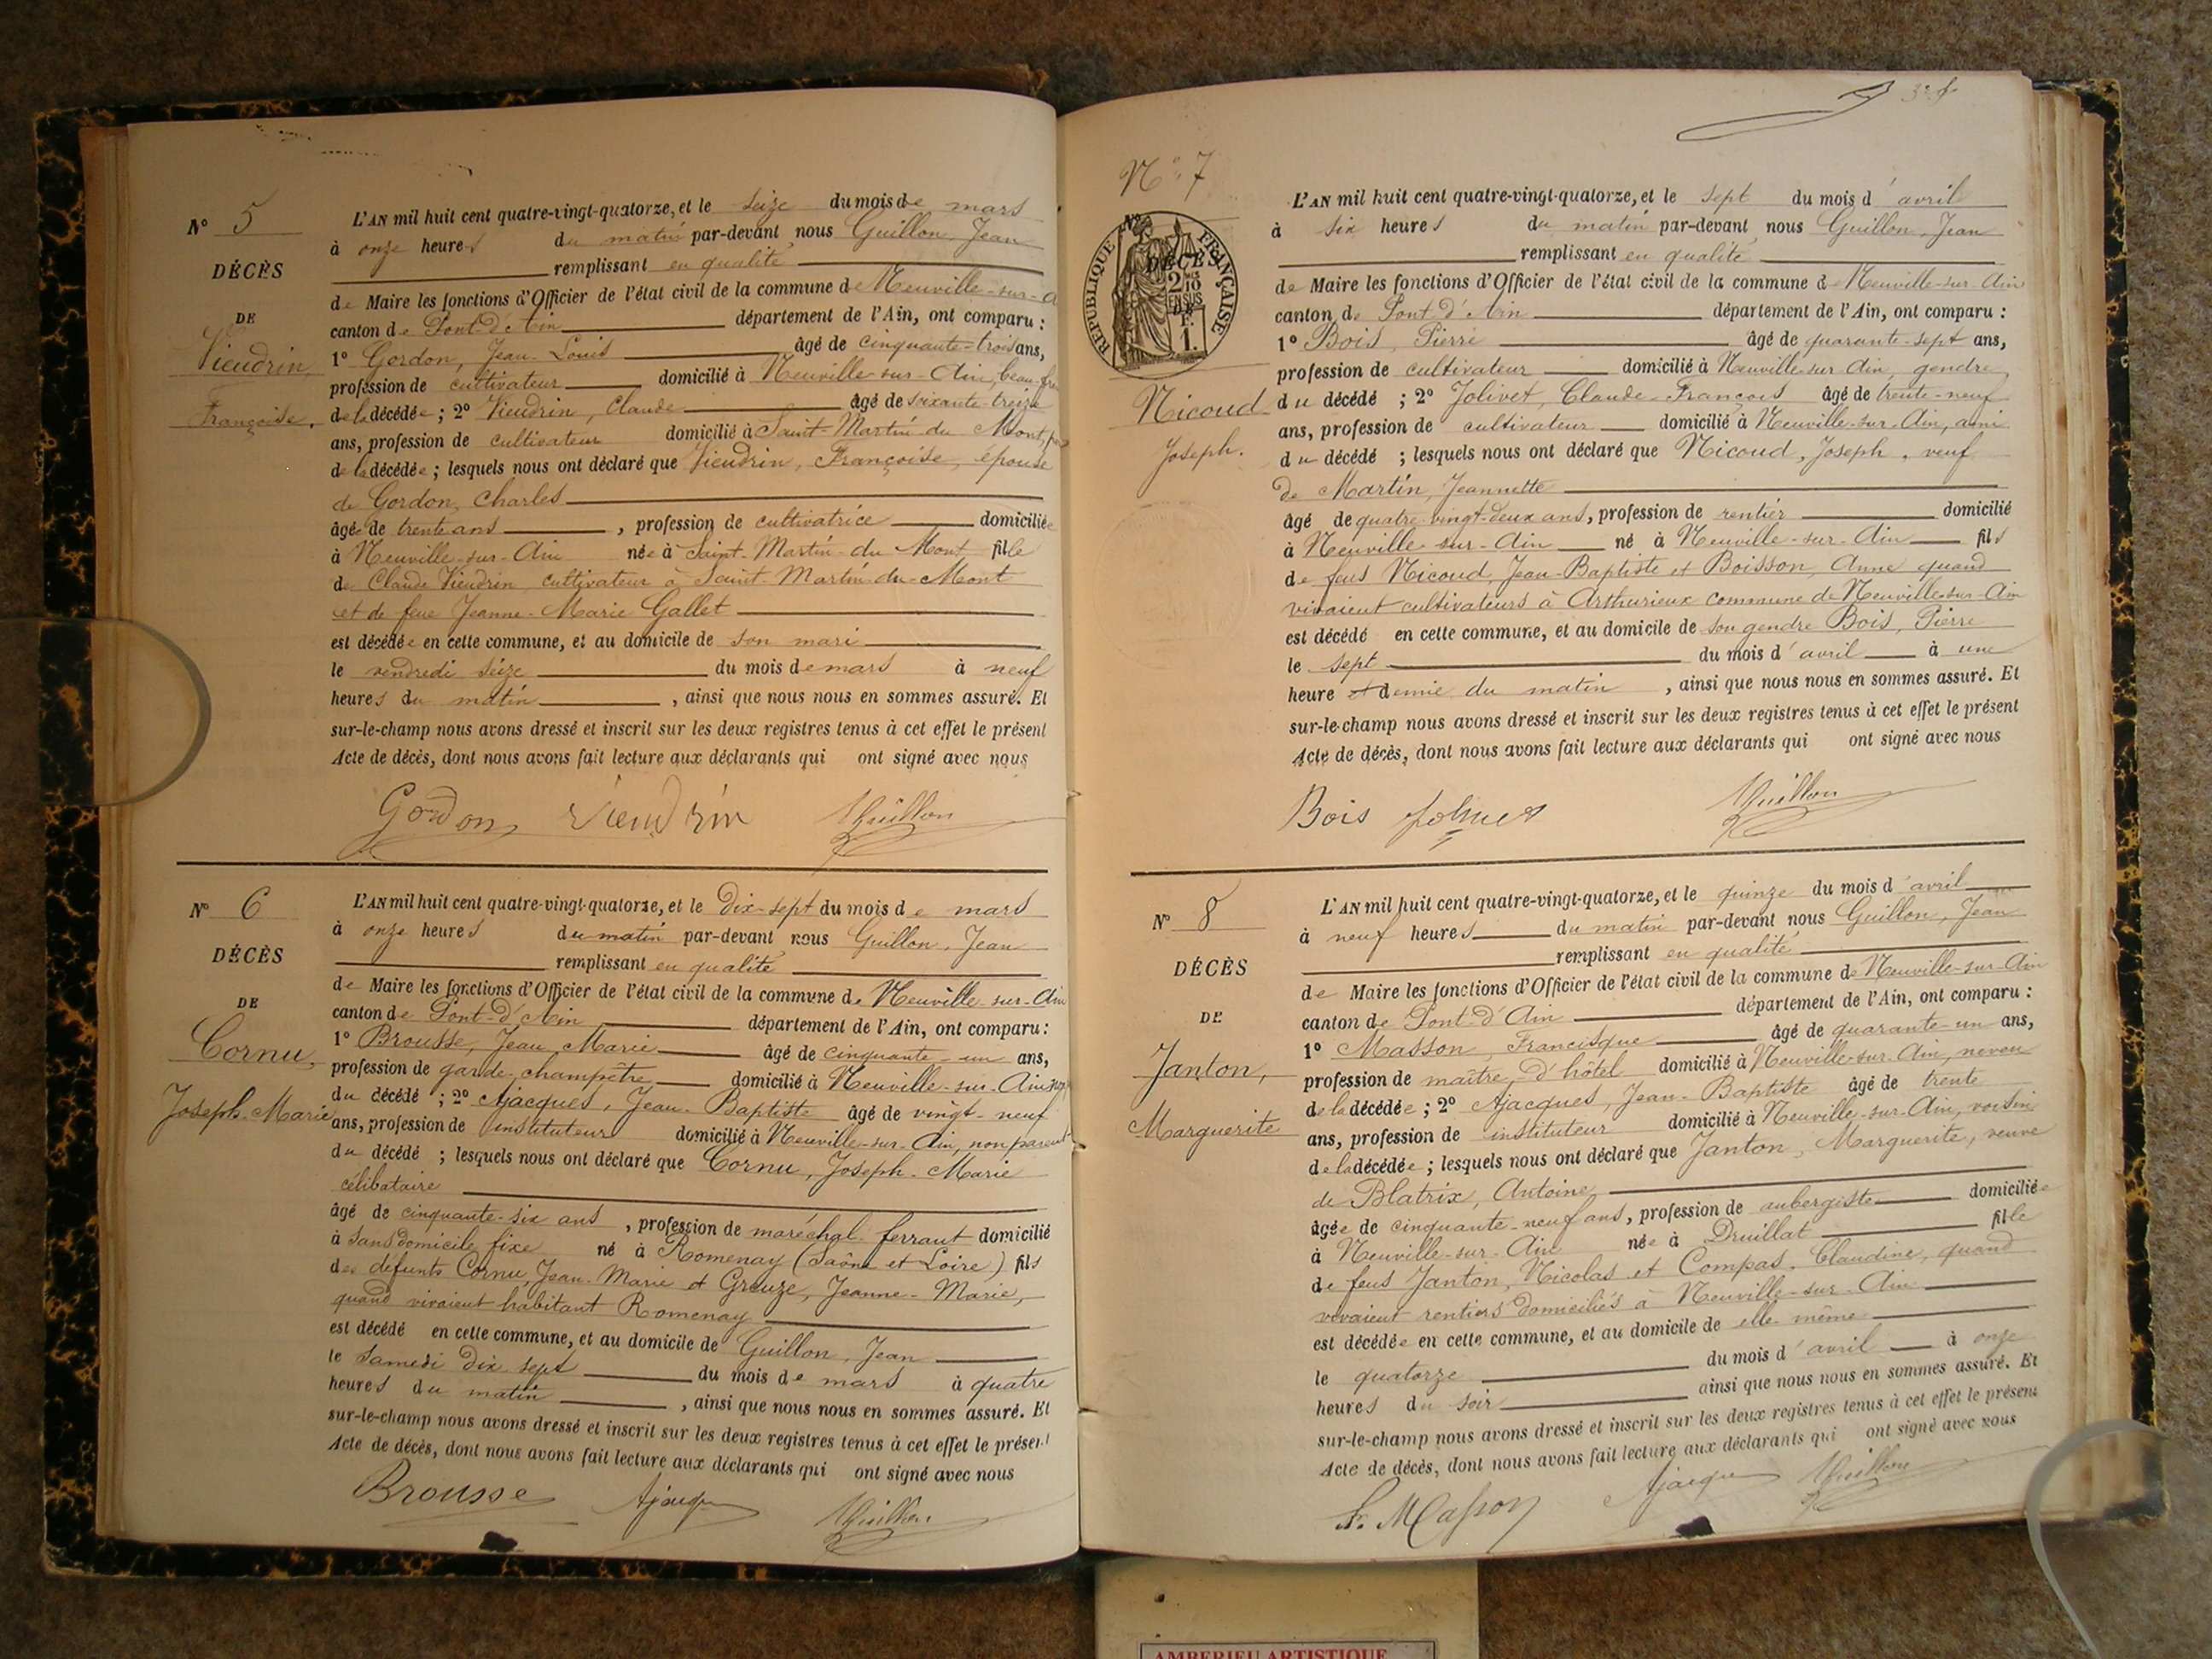 N° 5
DÉCÈS
DE
Vieudrin,
Françoise.
L'AN mil huit cent quatre-vingt-quatorze, et le seize du mois de mars
à onze heures du matin par-devant nous Guillon, Jean
remplissant en qualité
de Maire les fonctions d'Officier de l'état civil de la commune de Neuville-sur-A
canton de Pont-d'Ain département de l'Ain, ont comparu :
1° Gordon, Jean-Louis âgé de cinquante-trois ans,
profession de cultivateur domicilié à Neuville-sur-Ain, beau-frère
de la décédée ; 2° Vieudrin, Claude âgé de soixante-treize
ans, profession de cultivateur domicilié à Saint-Martin-du-Mont, père
de la décédée ; lesquels nous ont déclaré que Vieudrin, Françoise, épouse
de Gordon, Charles
âgée de trente ans , profession de cultivatrice domiciliée
à Neuville-sur-Ain née à Saint-Martin-du-Mont fille
de Claude Vieudrin cultivateur à Saint-Martin-du-Mont
et de feue Jeanne-Marie Gallet
est décédée en cette commune, et au domicile de son mari
le vendredi seize du mois de mars à neuf
heures du matin , ainsi que nous nous en sommes assuré. Et
sur-le-champ nous avons dressé et inscrit sur les deux registres tenus à cet effet le présent
Acte de décès, dont nous avons fait lecture aux déclarants qui ont signé avec nous
Gordon Vieudrin Guillon
N° 6
DÉCÈS
DE
Cornu,
Joseph-Marie
L'AN mil huit cent quatre-vingt-quatorze, et le dix-sept du mois de mars
à onze heures du matin par-devant nous Guillon, Jean
remplissant en qualité
de Maire les fonctions d'Officier de l'état civil de la commune de Neuville-sur-Ain
canton de Pont-d'Ain département de l'Ain, ont comparu :
1° Brousse, Jean Marie âgé de cinquante-un ans,
profession de garde-champêtre domicilié à Neuville-sur-Ain
du décédé ; 2° Ajacques, Jean-Baptiste âgé de vingt-neuf
ans, profession de instituteur domicilié à Neuville-sur-Ain, non parent
du décédé ; lesquels nous ont déclaré que Cornu, Joseph-Marie
célibataire
âgé de cinquante-six ans , profession de maréchal-ferrant domicilié
à sans domicile fixe né à Romenay (Saône et Loire) fils
des défunts Cornu, Jean-Marie et Greuze, Jeanne-Marie,
quand vivaient habitant Romenay
est décédé en cette commune, et au domicile de Guillon, Jean
le samedi dix-sept du mois de mars à quatre
heures du matin , ainsi que nous nous en sommes assuré. Et
sur-le-champ nous avons dressé et inscrit sur les deux registres tenus à cet effet le présent
Acte de décès, dont nous avons fait lecture aux déclarants qui ont signé avec nous
Brousse Ajacques Guillon
N° 7
RÉPUBLIQUE FRANÇAISE
DÉCÈS
2/10 EN SUS
DE
F.
1.
Nicoud
Joseph.
L'AN mil huit cent quatre-vingt-quatorze, et le sept du mois d'avril
à six heures du matin par-devant nous Guillon, Jean
remplissant en qualité
de Maire les fonctions d'Officier de l'état civil de la commune de Neuville-sur-Ain
canton de Pont-d'Ain département de l'Ain, ont comparu :
1° Bois, Pierre âgé de quarante-sept ans,
profession de cultivateur domicilié à Neuville-sur-Ain, gendre
du décédé ; 2° Jolivet, Claude-François âgé de trente-neuf
ans, profession de cultivateur domicilié à Neuville-sur-Ain, ami
du décédé ; lesquels nous ont déclaré que Nicoud, Joseph, veuf
de Martin, Jeannette
âgé de quatre-vingt-deux ans, profession de rentier domicilié
à Neuville-sur-Ain né à Neuville-sur-Ain fils
de feus Nicoud, Jean-Baptiste et Boisson, Anne quand
vivaient cultivateurs à Arthurieux commune de Neuville-sur-Ain
est décédé en cette commune, et au domicile de son gendre Bois, Pierre
le sept du mois d'avril à une
heure et demie du matin , ainsi que nous nous en sommes assuré. Et
sur-le-champ nous avons dressé et inscrit sur les deux registres tenus à cet effet le présent
Acte de décès, dont nous avons fait lecture aux déclarants qui ont signé avec nous
Bois Jolivet Guillon
N° 8
DÉCÈS
DE
Janton,
Marguerite
L'AN mil huit cent quatre-vingt-quatorze, et le quinze du mois d'avril
à neuf heures du matin par-devant nous Guillon, Jean
remplissant en qualité
de Maire les fonctions d'Officier de l'état civil de la commune de Neuville-sur-Ain
canton de Pont-d'Ain département de l'Ain, ont comparu :
1° Masson, Francisque âgé de quarante-un ans,
profession de maître d'hôtel domicilié à Neuville-sur-Ain, neveu
de la décédée ; 2° Ajacques, Jean-Baptiste âgé de trente
ans, profession de instituteur domicilié à Neuville-sur-Ain, voisin
de la décédée ; lesquels nous ont déclaré que Janton, Marguerite, veuve
de Blatrix, Antoine
âgée de cinquante-neuf ans, profession de aubergiste domiciliée
à Neuville-sur-Ain née à Druillat fille
de feus Janton, Nicolas et Compas, Claudine, quand
vivaient rentiers domiciliés à Neuville-sur-Ain
est décédée en cette commune, et au domicile de elle même
le quatorze du mois d'avril à onze
heures du soir ainsi que nous nous en sommes assuré. Et
sur-le-champ nous avons dressé et inscrit sur les deux registres tenus à cet effet le présent
Acte de décès, dont nous avons fait lecture aux déclarants qui ont signé avec nous
F. Masson Ajacques Guillon
AMBERIEU ARTISTIQUE